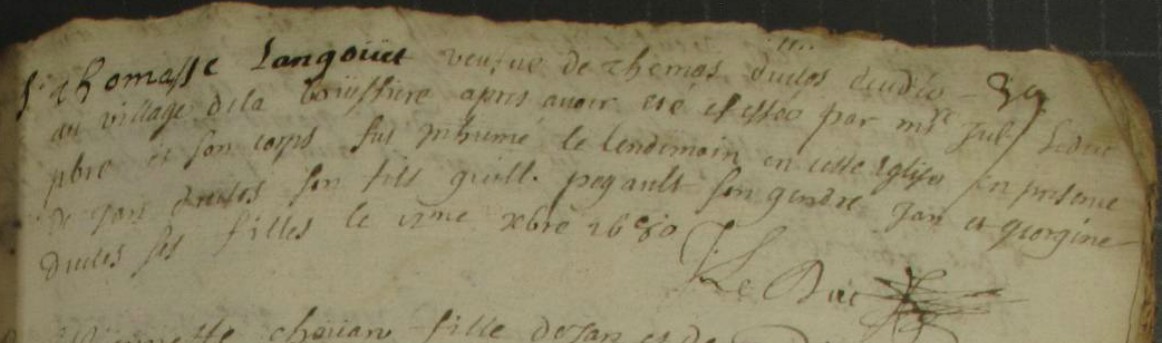 Thomasse Langoüet veufue de Thomas drules deceda
au village de la boüessiere apres auoir esté confessée par mre Jul Leduc
pbre et son corps fut inhumé le lendemain en cette Eglise en presence
de Jan drules son fils guill. pegault son gendre Jan et georgine
drules ses filles le xbre 1680
Le Duc
fille de Jan et de